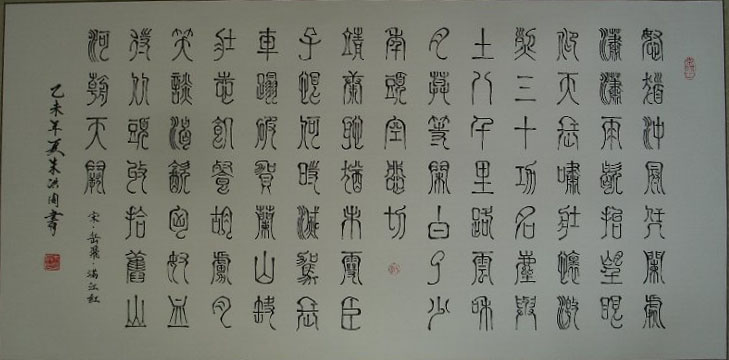 怒髮沖冠憑闌處
瀟瀟雨歇抬望眼
仰天長嘯壯懷激
烈三十功名塵與
土八千里路雲和
月莫等閑白了少
年頭空悲切
靖康恥猶未雪臣
子恨何時滅駕長
車踏破賀蘭山缺
壯志飢餐胡虜肉
笑談渴飲匈奴血
待從頭收拾舊山
河朝天闕
宋·岳飛·滿江紅
乙未年夏朱洪周書